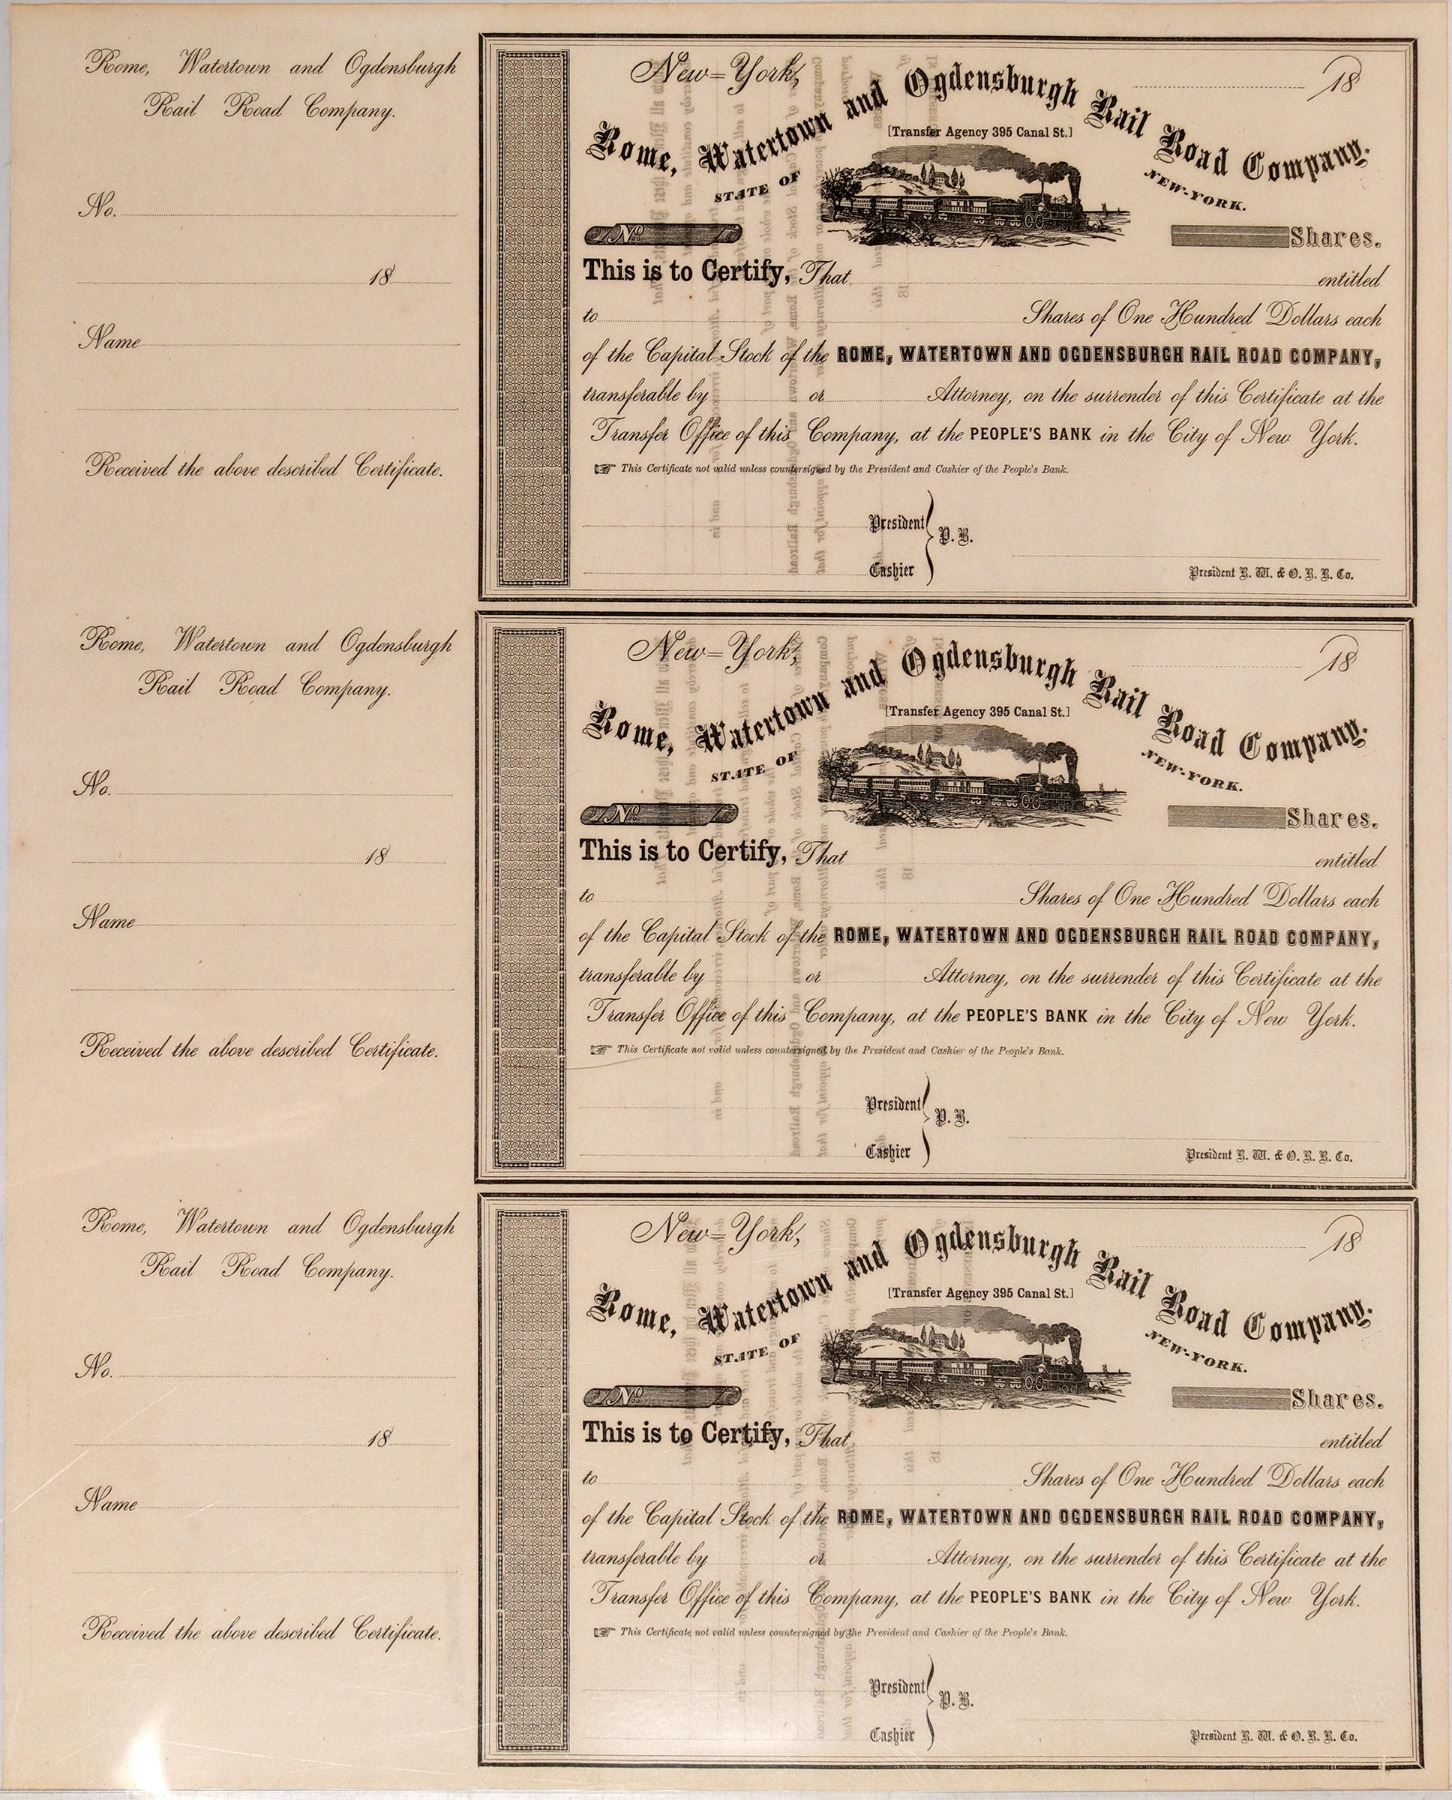 Rome, Watertown and Ogdensburgh
Rail Road Company.
No.
18
Name
Received the above described Certificate.
New=York,
18
Rome, Watertown and Ogdensburgh Rail Road Company.
[Transfer Agency 395 Canal St.]
STATE OF NEW-YORK.
No
Shares.
This is to Certify, That entitled
to Shares of One Hundred Dollars each
of the Capital Stock of the ROME, WATERTOWN AND OGDENSBURGH RAIL ROAD COMPANY,
transferable by or Attorney, on the surrender of this Certificate at the
Transfer Office of this Company, at the PEOPLE'S BANK in the City of New York.
☞ This Certificate not valid unless countersigned by the President and Cashier of the People's Bank.
President
P. B.
Cashier
President R. W. & O. R. R. Co.
Rome, Watertown and Ogdensburgh
Rail Road Company.
No.
18
Name
Received the above described Certificate.
New=York,
18
Rome, Watertown and Ogdensburgh Rail Road Company.
[Transfer Agency 395 Canal St.]
STATE OF NEW-YORK.
No
Shares.
This is to Certify, That entitled
to Shares of One Hundred Dollars each
of the Capital Stock of the ROME, WATERTOWN AND OGDENSBURGH RAIL ROAD COMPANY,
transferable by or Attorney, on the surrender of this Certificate at the
Transfer Office of this Company, at the PEOPLE'S BANK in the City of New York.
☞ This Certificate not valid unless countersigned by the President and Cashier of the People's Bank.
President
P. B.
Cashier
President R. W. & O. R. R. Co.
Rome, Watertown and Ogdensburgh
Rail Road Company.
No.
18
Name
Received the above described Certificate.
New=York,
18
Rome, Watertown and Ogdensburgh Rail Road Company.
[Transfer Agency 395 Canal St.]
STATE OF NEW-YORK.
No
Shares.
This is to Certify, That entitled
to Shares of One Hundred Dollars each
of the Capital Stock of the ROME, WATERTOWN AND OGDENSBURGH RAIL ROAD COMPANY,
transferable by or Attorney, on the surrender of this Certificate at the
Transfer Office of this Company, at the PEOPLE'S BANK in the City of New York.
☞ This Certificate not valid unless countersigned by the President and Cashier of the People's Bank.
President
P. B.
Cashier
President R. W. & O. R. R. Co.